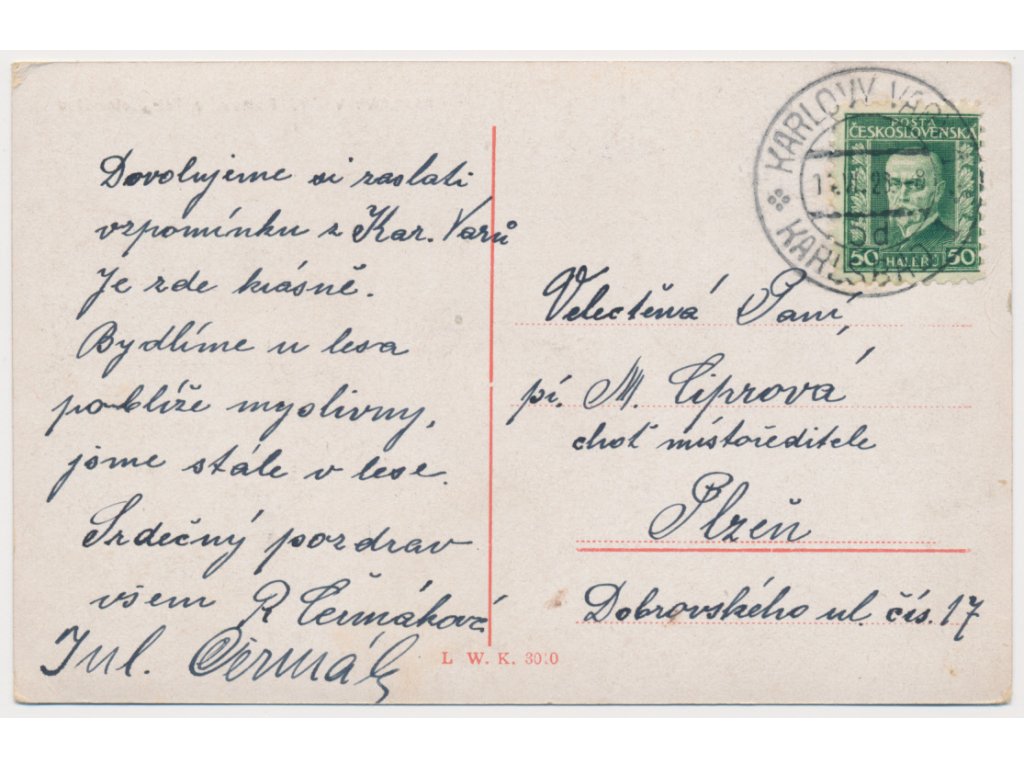 Dovolujeme si zaslati
vzpomínku z Kar. Varů
Je zde krásně.
Bydlíme u lesa
poblíže myslivny,
jsme stále v lese.
Srdečný pozdrav
všem R Čermáková
Jul. Čermák
L. W. K. 3010
KARLOVY VARY
KARLSBAD
5d
POŠTA
ČESKOSLOVENSKÁ
50 HALÉŘŮ 50
Velectěná Paní,
pí. M. Ciprová
choť místoředitele
Plzeň
Dobrovského ul. čís. 17